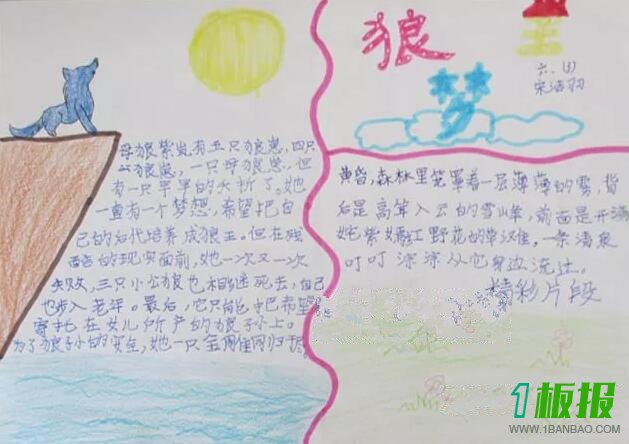 狼王
梦
六.(1)
宋洁羽
母狼紫岚有五只狼崽，四只
公狼崽，一只母狼崽，但
有一只早早的夭折了。她
一直有一个梦想，希望把自
己的后代培养成狼王。但在残
酷的现实面前，她一次又一次
失败，三只小公狼也相继死去，自己
也步入老年。最后，它只能把希望
寄托在女儿所产的狼子小上。
为了狼子小的安全，她一只金雕同归于
黄昏，森林里笼罩着一层薄薄的雾，背
后是高耸入云的雪峰，前面是开满
姹紫嫣红野花的草滩。一条清泉
叮叮淙淙从它身边流过。
精彩片段
1板报
WWW.1BANBAO.COM